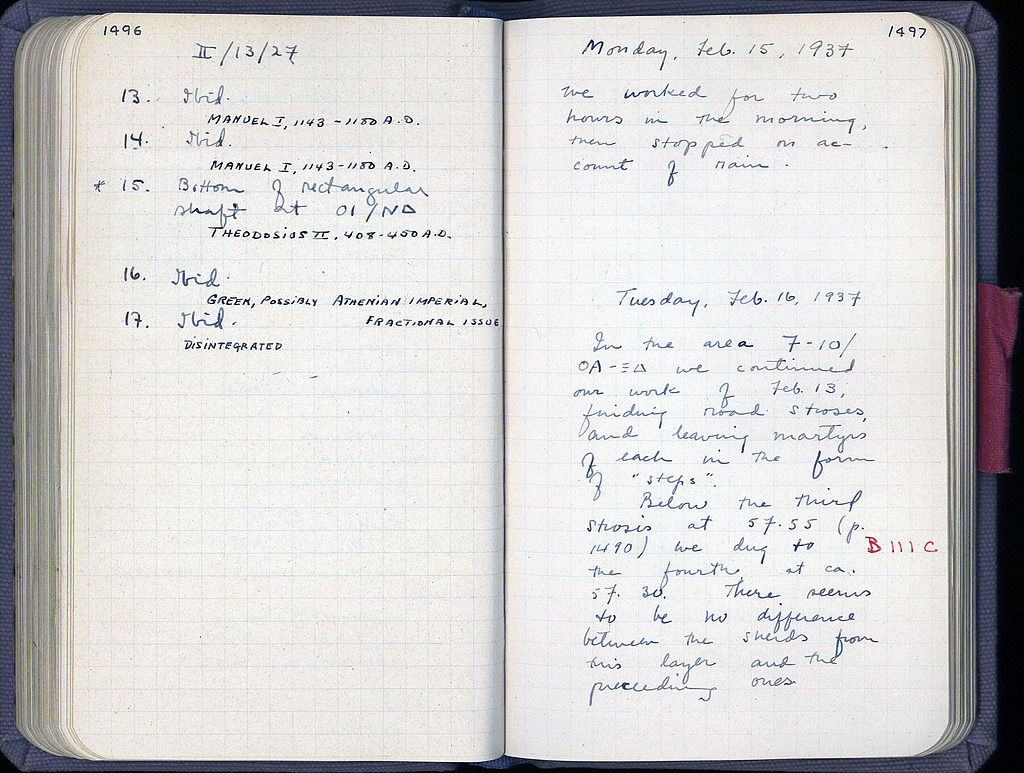 1496
II/13/27
13. Ibid.
MANUEL I, 1143-1180 A.D.
14. Ibid.
MANUEL I, 1143-1180 A.D.
* 15. Bottom of rectangular
shaft at ΟΙ/ΝΔ
THEODOSIUS II, 408-450 A.D.
16. Ibid.
GREEK, POSSIBLY ATHENIAN IMPERIAL,
FRACTIONAL ISSUE
17. Ibid.
DISINTEGRATED
1497
Monday, Feb. 15, 1937
We worked for two
hours in the morning,
then stopped on ac-
count of rain.
Tuesday, Feb. 16, 1937
In the area 7-10/
ΟΑ-ΞΔ we continued
our work of Feb. 13,
finding road stroses,
and leaving martyrs
of each in the form
of "steps".
Below the third
strosis at 57.55 (p.
1490) we dug to
B 111 C
the fourth, at ca.
57.30. There seems
to be no difference
between the sherds from
this layer and the
preceeding ones.